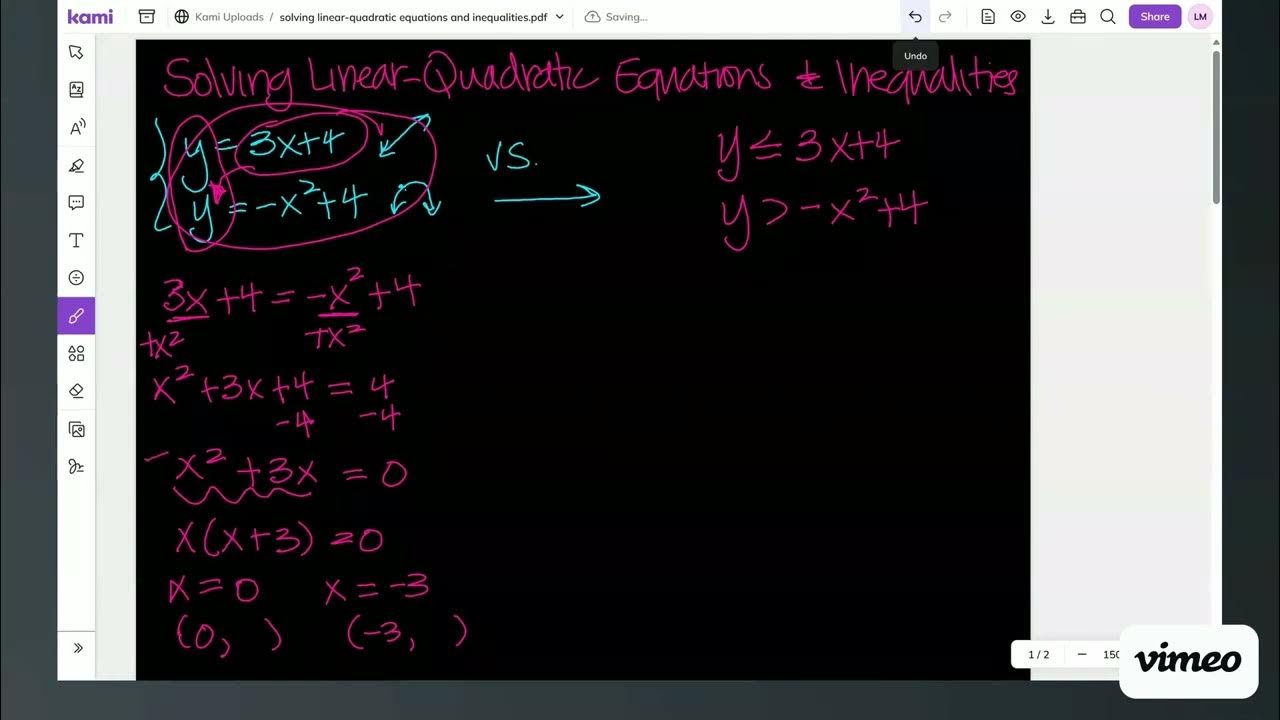 kami
Kami Uploads / solving linear-quadratic equations and inequalities.pdf
Saving...
Share
LM
Undo
Solving Linear-Quadratic Equations & Inequalities
y = 3x+4
y = -x²+4
vs.
y ≤ 3x+4
y > -x²+4
3x +4 = -x² +4
+x² +x²
x² +3x +4 = 4
-4 -4
x² +3x = 0
x(x+3) = 0
x = 0 x = -3
(0, ) (-3, )
1 / 2
vimeo